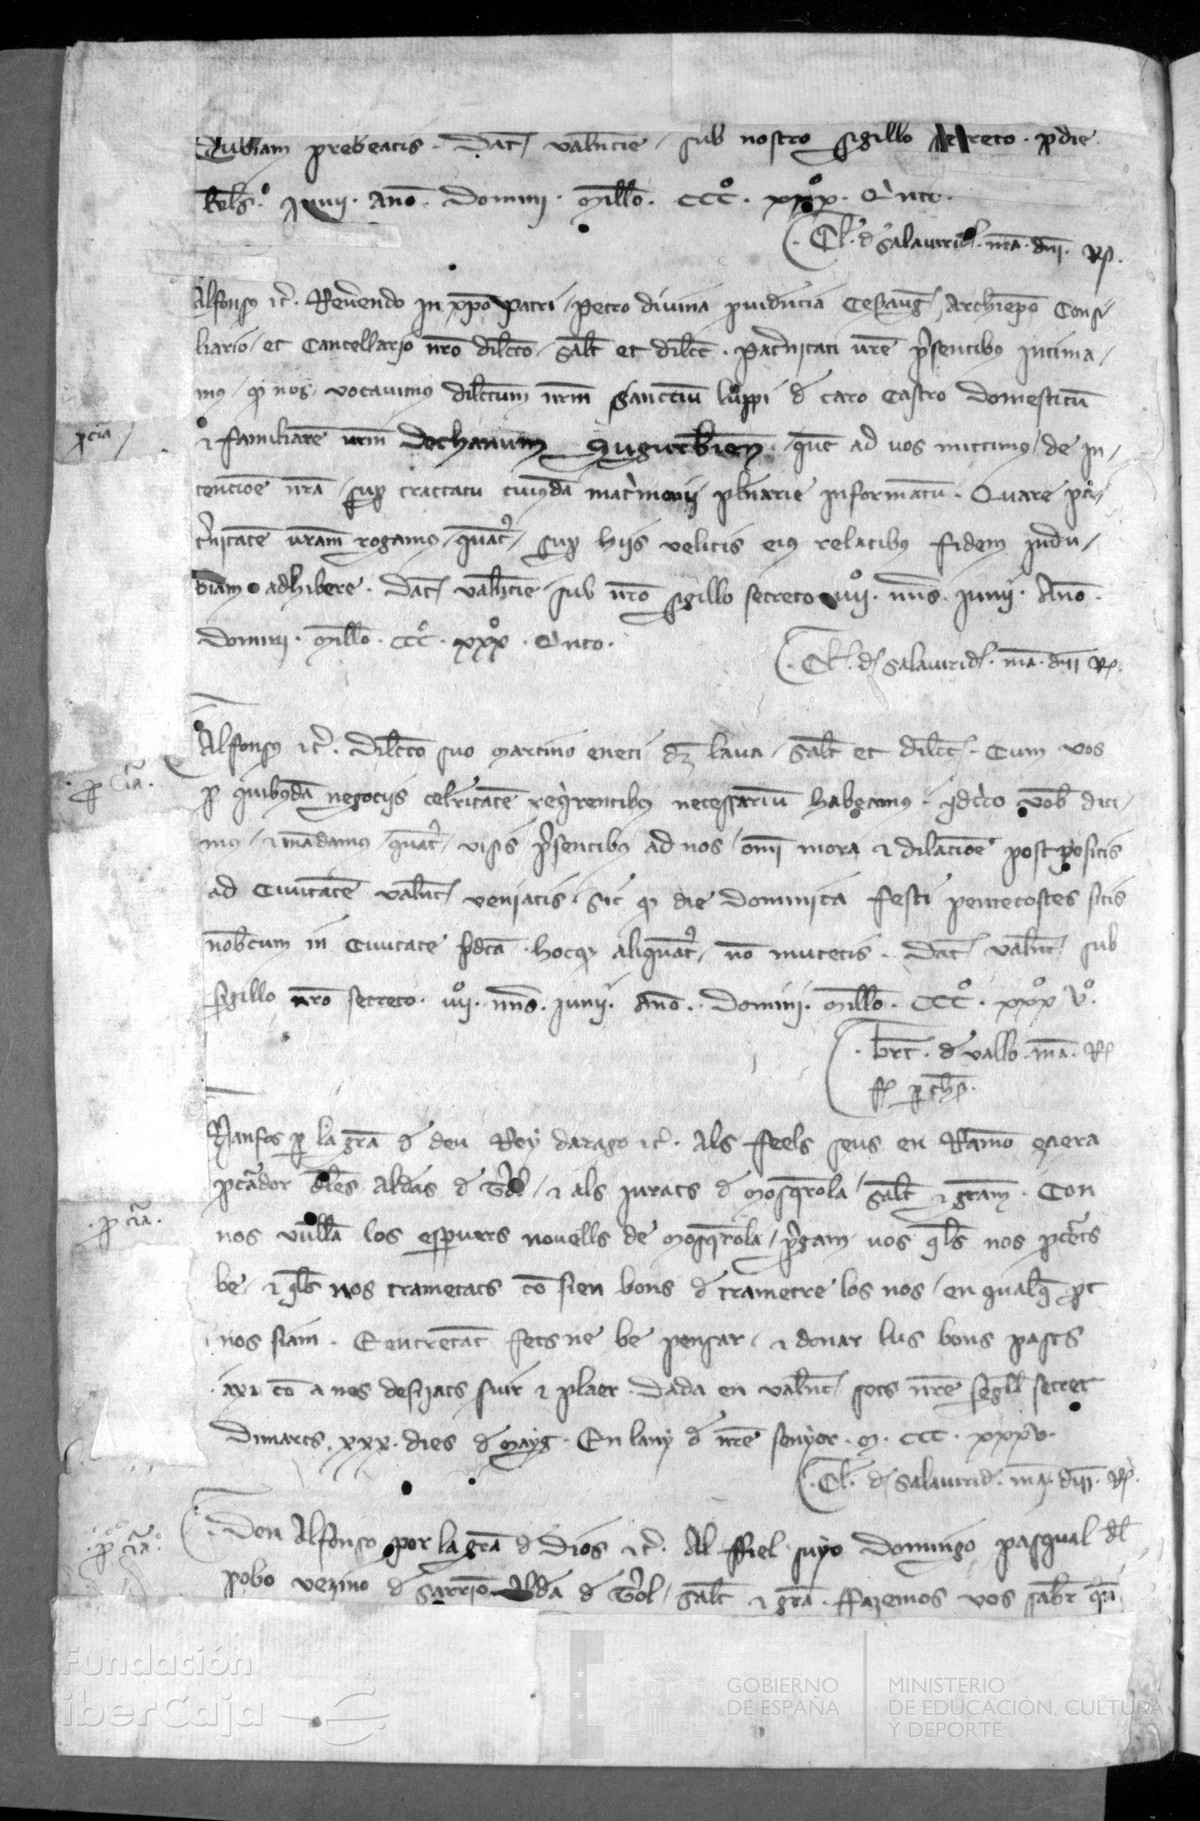 dubiam prebeatis. Dat Valencie sub nostro sigillo secreto. pdie.
Kls. Junii. Ano. Domini. Millo. CCCº. xxxº. Qnto.
Cl. d salauirid. ma. dni. R.
Alfonsus etc. Reuendo in xpo patri Petro diuina puidencia Cesaug Archiepo Consi
liario et Cancellario nro dilcto salt et dilcc. Patnitati ure psentibus intima
mus q nos vocauimus dilctum nrm Sanccium luppi d caro Castro domesticu
pcia
et familiare nrm dechanum Sugurbien quem ad uos mittimus de in
tencioe nra sup tractatu cuiusda mat'monii plenarie informatu. Quare pat
nitate uram rogamus quat sup hiis velitis eius relatibus fidem indu
biam adhibere. Dat Valencie sub nro sigillo secreto iiiiº. nns. Junii. Ano.
domini. Millo. CCCº. xxxº. Qnto.
Cl. d salauirid. ma. dni R.
Alfonsus etc. Dilcto suo Martino eneci d laua salt et dilcc. Cum vos
p cia.
p quibusda negociis celitate reqirentibus necessariu habeamus. idcirco vob dici
mus et mandamus quat visis psentibus ad nos omi mora et dilacioe postpositis
ad Ciuitate Valenc veniatis sic q die dominica festi pentecostes sitis
nobcum in Ciuitate pdca. hocq aliquat no mutetis. Dat Valenc sub
sigillo nro secreto. iiiiº. nns. Junii. Ano. Domini. Millo. CCCº. xxxº vº.
brt. d vallo. ma. R
p
Nanfos p la gra d deu Rey darago etc. Als feels seus en Ramo
pcador dles Aldeas d Tol et als jurats d Mosqrola salt et gram. Con
p cia.
nos vulla los esperuers nouells de Mosqrola pgam uos qls nos
be et qls nos trametats co sien bons d trametre los nos en qualq pt
nos siam. E entretat fets ne be pensar et donar lus bons pasts
axi co a nos desijats suir et plaer. Dada en Valenc sots nre segll secret
dimarts. xxx. dies d Mayg. En lany d nre senyor. M. CCC. xxxv.
Cl. d salauirid. ma. dni. R.
p cia.
Don Alfonso por la gra d Dios etc. Al ffiel suyo Domingo pasqual dl
pobo vezino d Sarrio Alda d Tol salt et gra. ffazemos vos saber q
Fundación
iberCaja
GOBIERNO
DE ESPAÑA
MINISTERIO
DE EDUCACIÓN, CULTURA
Y DEPORTE